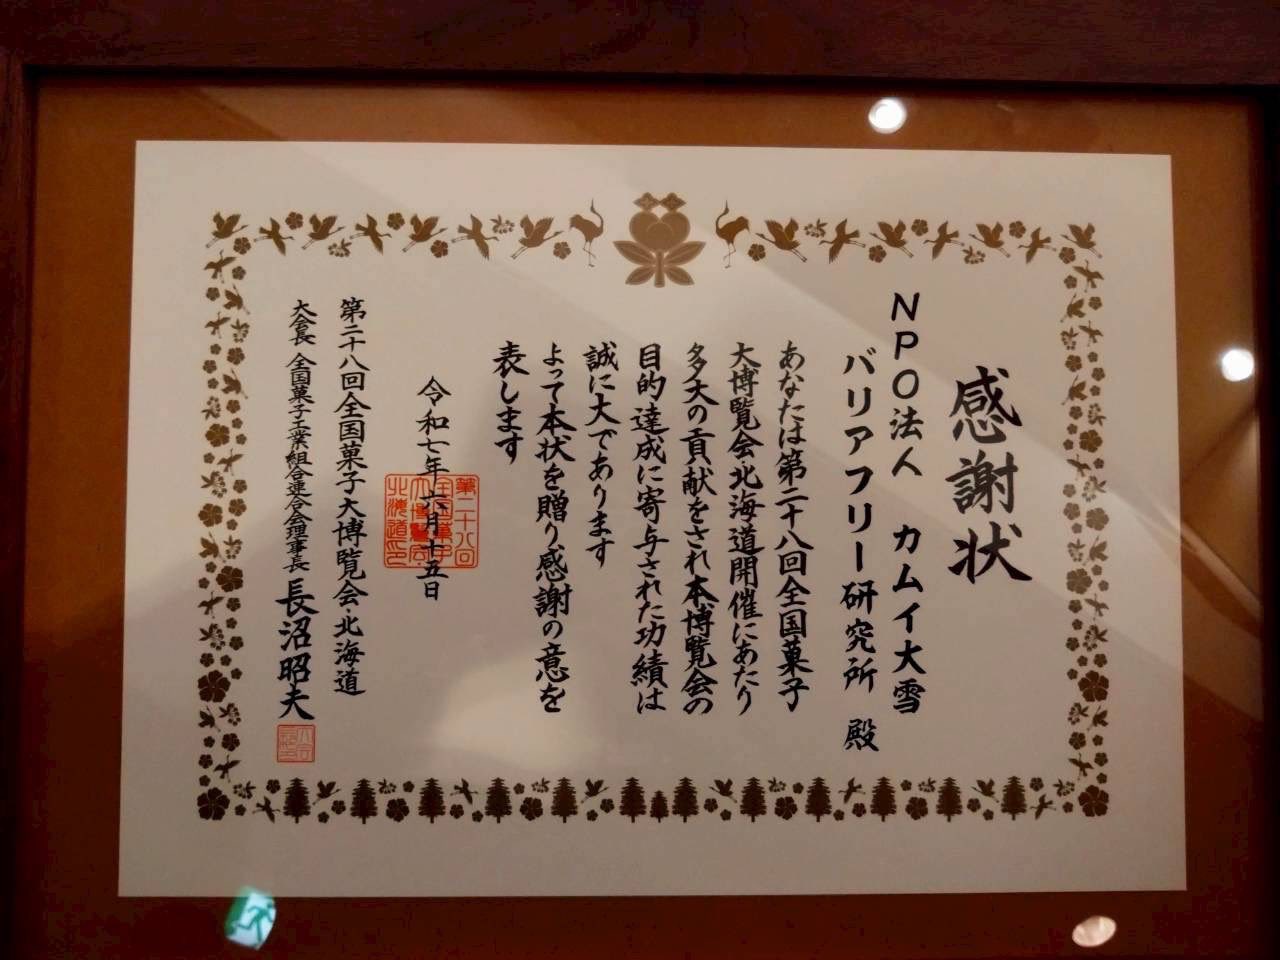 感謝状
NPO法人 カムイ大雪
バリアフリー研究所 殿
あなたは第二十八回全国菓子
大博覧会・北海道開催にあたり
多大の貢献をされ本博覧会の
目的達成に寄与された功績は
誠に大であります
よって本状を贈り感謝の意を
表します
令和七年六月十五日
第二十八回
全国菓子
大博覧会
北海道之印
第二十八回全国菓子大博覧会・北海道
大会長 全国菓子工業組合連合会理事長 長沼昭夫